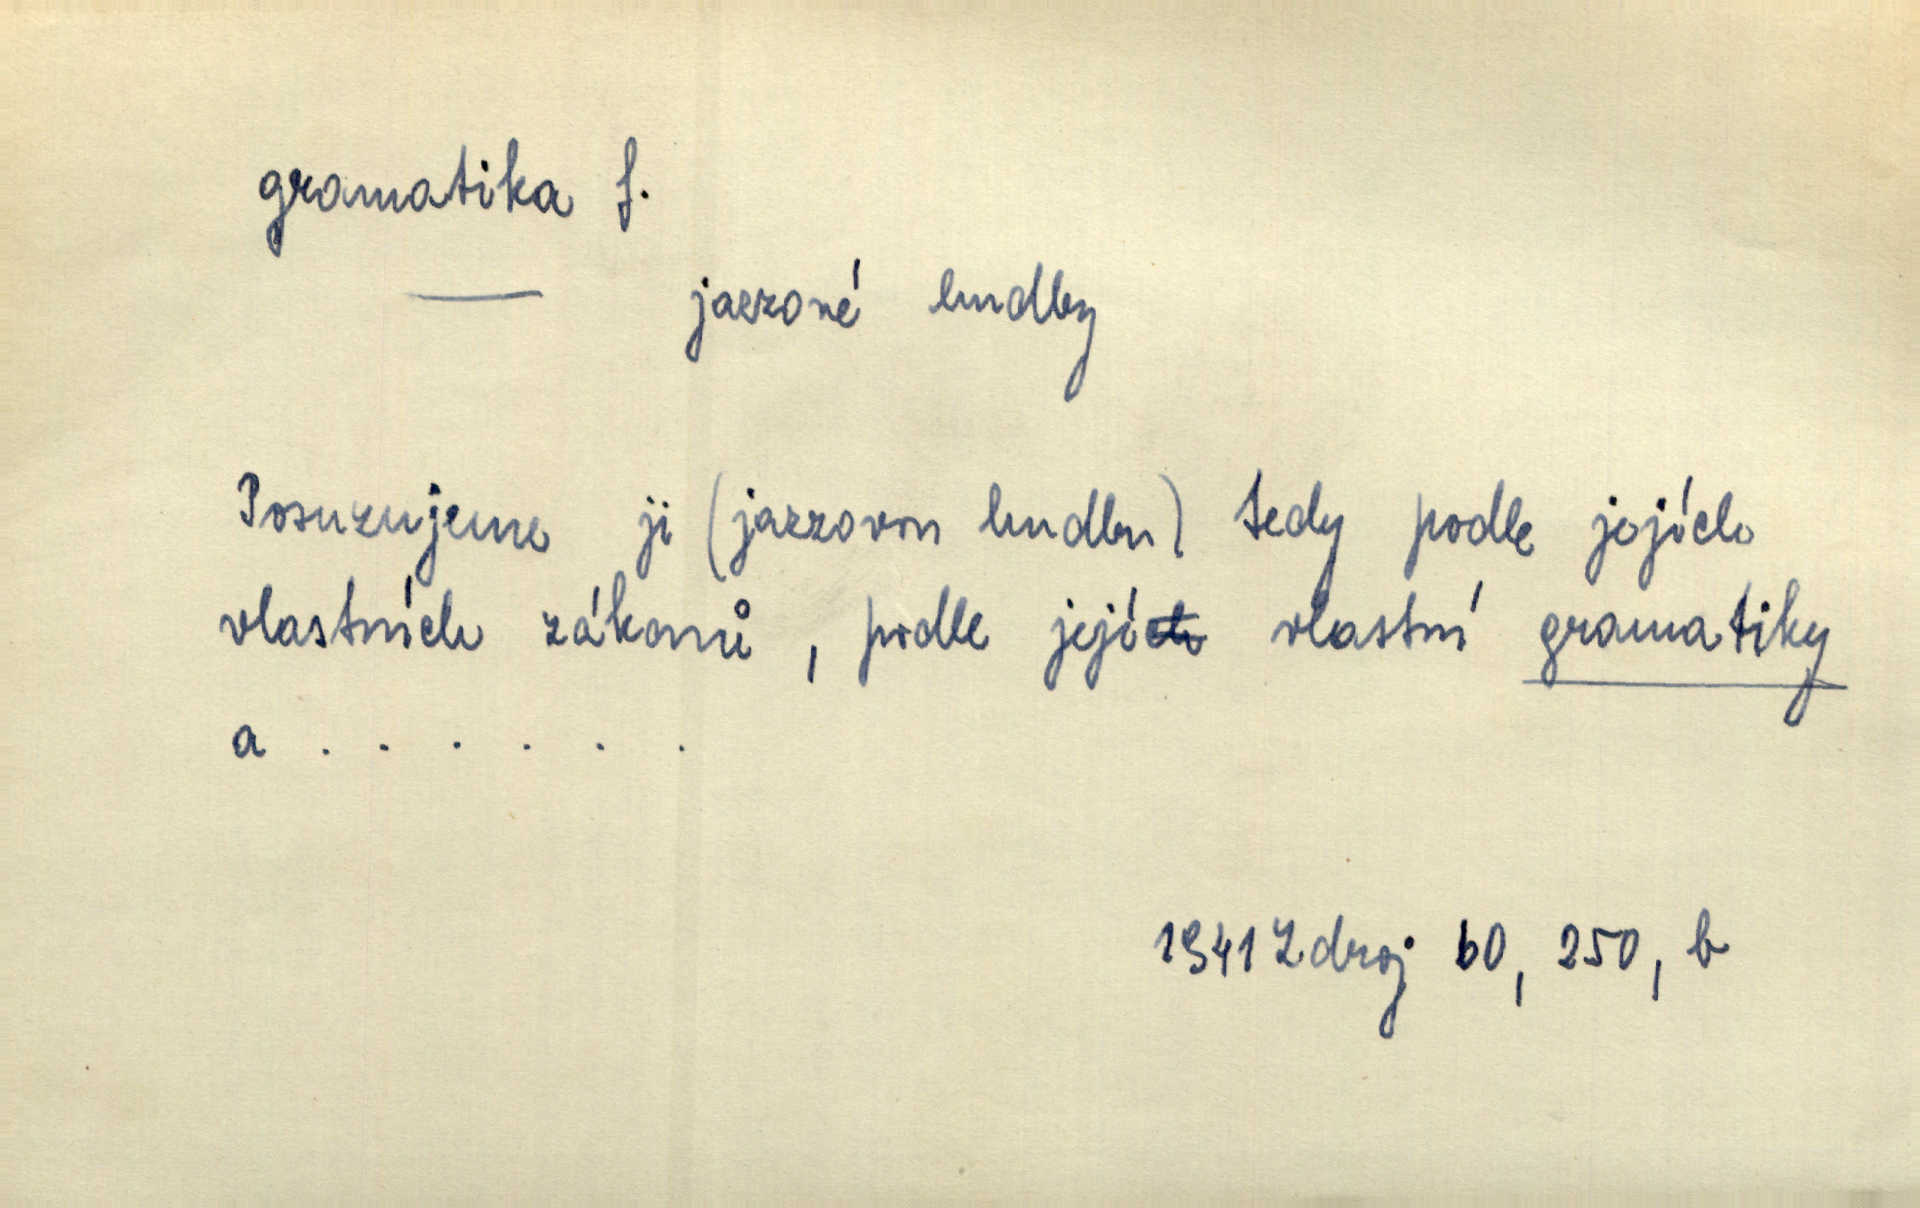 gramatika f.
— jazzové hudby
Posuzujeme ji (jazzovou hudbu) tedy podle jejích
vlastních zákonů, podle její vlastní gramatiky
a . . . . . .
1941 Zdroj 60, 250, b